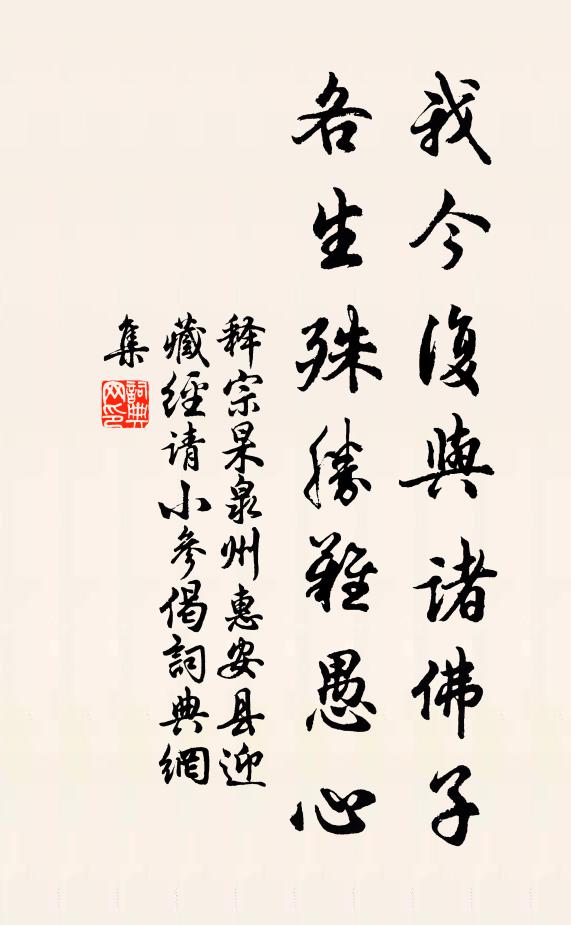 我今復與諸佛子
各生殊勝難愚心
释宗杲泉州惠安县迎
藏經请小參偈詞典網
集
詞典网印